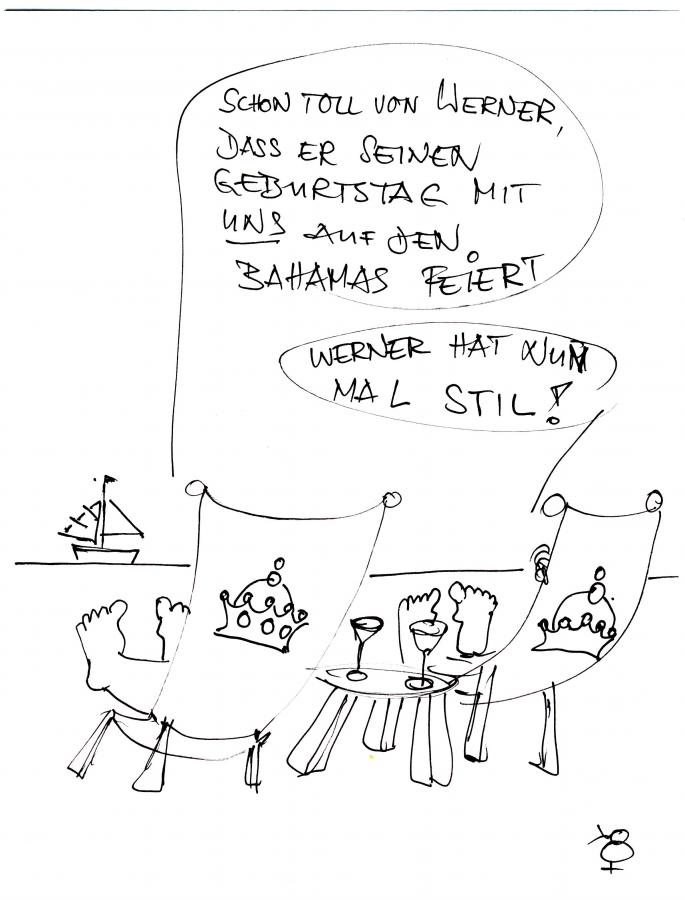 SCHON TOLL VON WERNER,
DASS ER SEINEN
GEBURTSTAG MIT
UNS AUF DEN
BAHAMAS FEIERT
WERNER HAT NUN
MAL STIL!